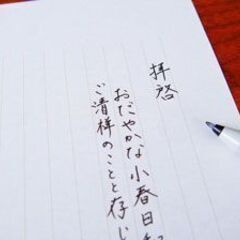 拝啓
おだやかな小春日和
ご清様のことと存じ